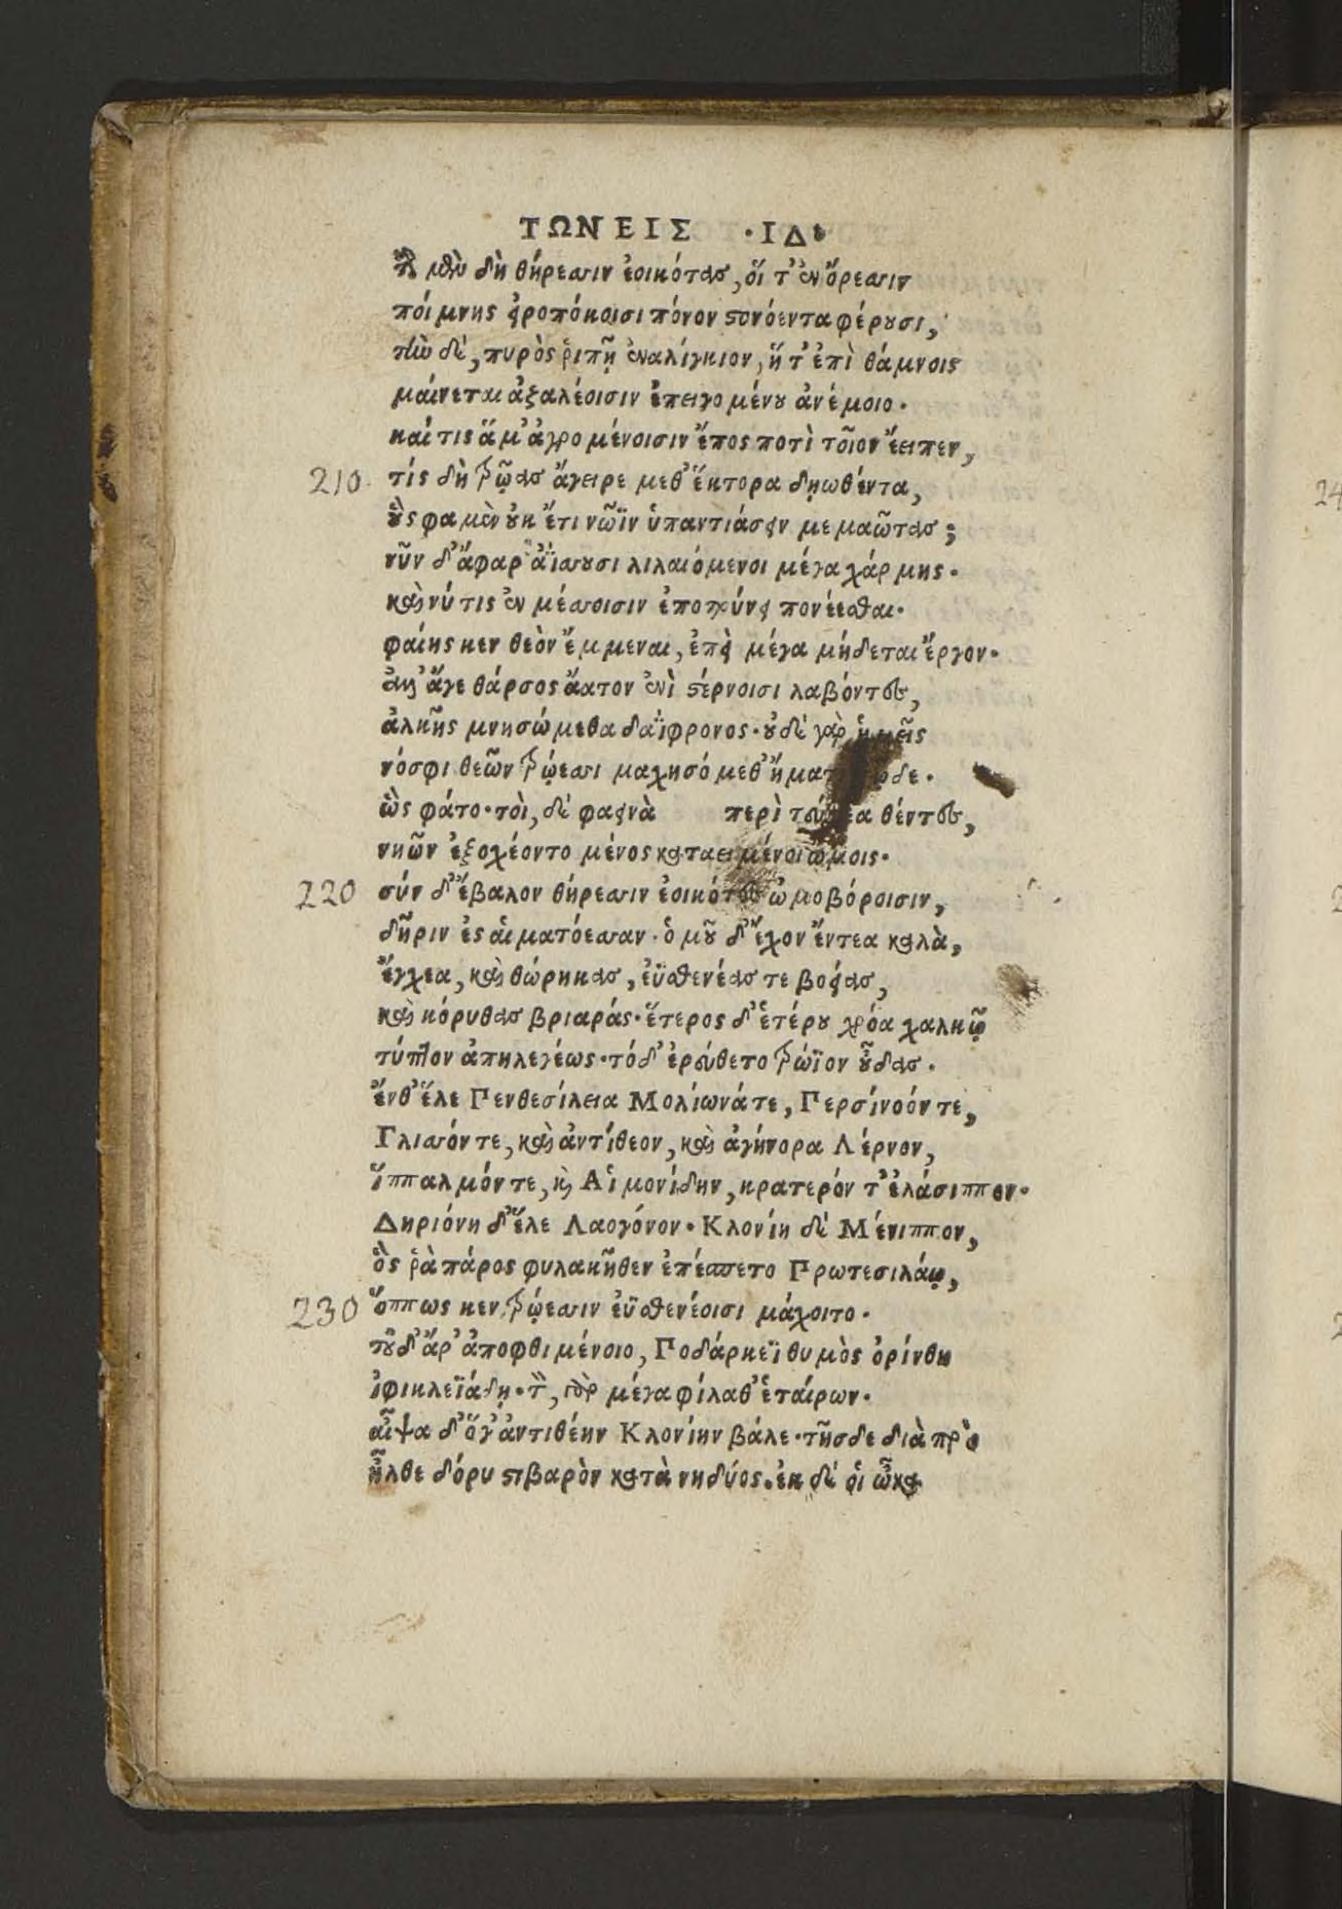 ΤΩΝ ΕΙΣ ·ΙΔ·
τοὺς μὲν δὴ θήρεσσιν ἐοικότας, οἵ τ' ἐν ὄρεσσιν
ποίμνης εἰροπόκοισι πόνον στονόεντα φέρουσι,
τὴν δὲ, πυρὸς ῥιπῇ ἐναλίγκιον, ἥ τ' ἐπὶ θάμνοις
μαίνεται ἀζαλέοισιν ἐπειγομένου ἀνέμοιο.
καί τις ἅμ' ἀγρομένοισιν ἔπος ποτὶ τοῖον ἔειπεν,
210 τίς δὴ τρῶας ἄγειρε μεθ' ἕκτορα δῃωθέντα,
οὓς φαμὲν οὐκ ἔτι νῶϊν ὑπαντιάσειν μεμαῶτας;
νῦν δ' ἄφαρ ἀΐσσουσι λιλαιόμενοι μέγα χάρμης.
καὶ νύ τις ἐν μέσσοισιν ἐποτρύνει πονέεσθαι.
φαίης κεν θεὸν ἔμμεναι, ἐπεὶ μέγα μήδεται ἔργον.
ἀλλ' ἄγε θάρσος ἄατον ἐνὶ στέρνοισι λαβόντες,
ἀλκῆς μνησώμεθα δαΐφρονος. οὐδὲ γὰρ ἡμεῖς
νόσφι θεῶν τρώεσσι μαχησόμεθ'
ὣς φάτο. τοὶ, δὲ φαεινὰ περὶ θέντες,
νηῶν ἐξοχέοντο μένος καταειμένοι ὤμοις.
220 σύν δ' ἔβαλον θήρεσσιν ἐοικότες ὠμοβόροισιν,
δῆριν ἐς αἱματόεσσαν. ὁμοῦ δ' ἔχον ἔντεα καλὰ,
ἔγχεα, καὶ θώρηκας, ἐϋσθενέας τε βοείας,
καὶ κόρυθας βριαράς. ἕτερος δ' ἑτέρου χρόα χαλκῷ
τύπτον ἀπηλεγέως. τό δ' ἐρεύθετο τρώϊον οὖδας.
ἔνθ' ἕλε Πενθεσίλεια Μολίωνάτε, Περσίνοόν τε,
Γλισσόν τε, καὶ ἀντίθεον, καὶ ἀγήνορα Λέρνον,
ἵππαλμόν τε, καὶ Αἱμονίδην, κρατερόν τ' ἐλάσιππον.
Δηριόνη δ' ἕλε Λαογόνον. Κλονίη δὲ Μένιππον,
ὅς ῥὰ πάρος φυλακῆθεν ἐπέσπετο Πρωτεσιλάῳ,
230 ὅππως κεν τρώεσσιν ἐϋσθενέοισι μάχοιτο.
τοῦ δ' ἄρ' ἀποφθιμένοιο, Ποδάρκεϊ θυμὸς ὀρίνθη
ἰφικλεϊάδῃ. τὸν, γὰρ μέγα φίλαθ' ἑταίρων.
αἶψα δ' ὅγ' ἀντιθέην Κλονίην βάλε. τῆσδε διὰ πρὸ
ἦλθε δόρυ στιβαρὸν κατὰ νηδύος. ἐκ δέ οἱ ὦκα